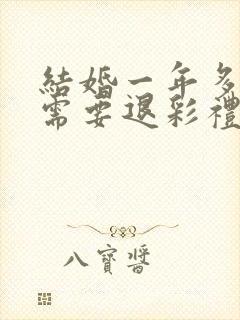 結婚一年多
需要退彩禮
八寶醬